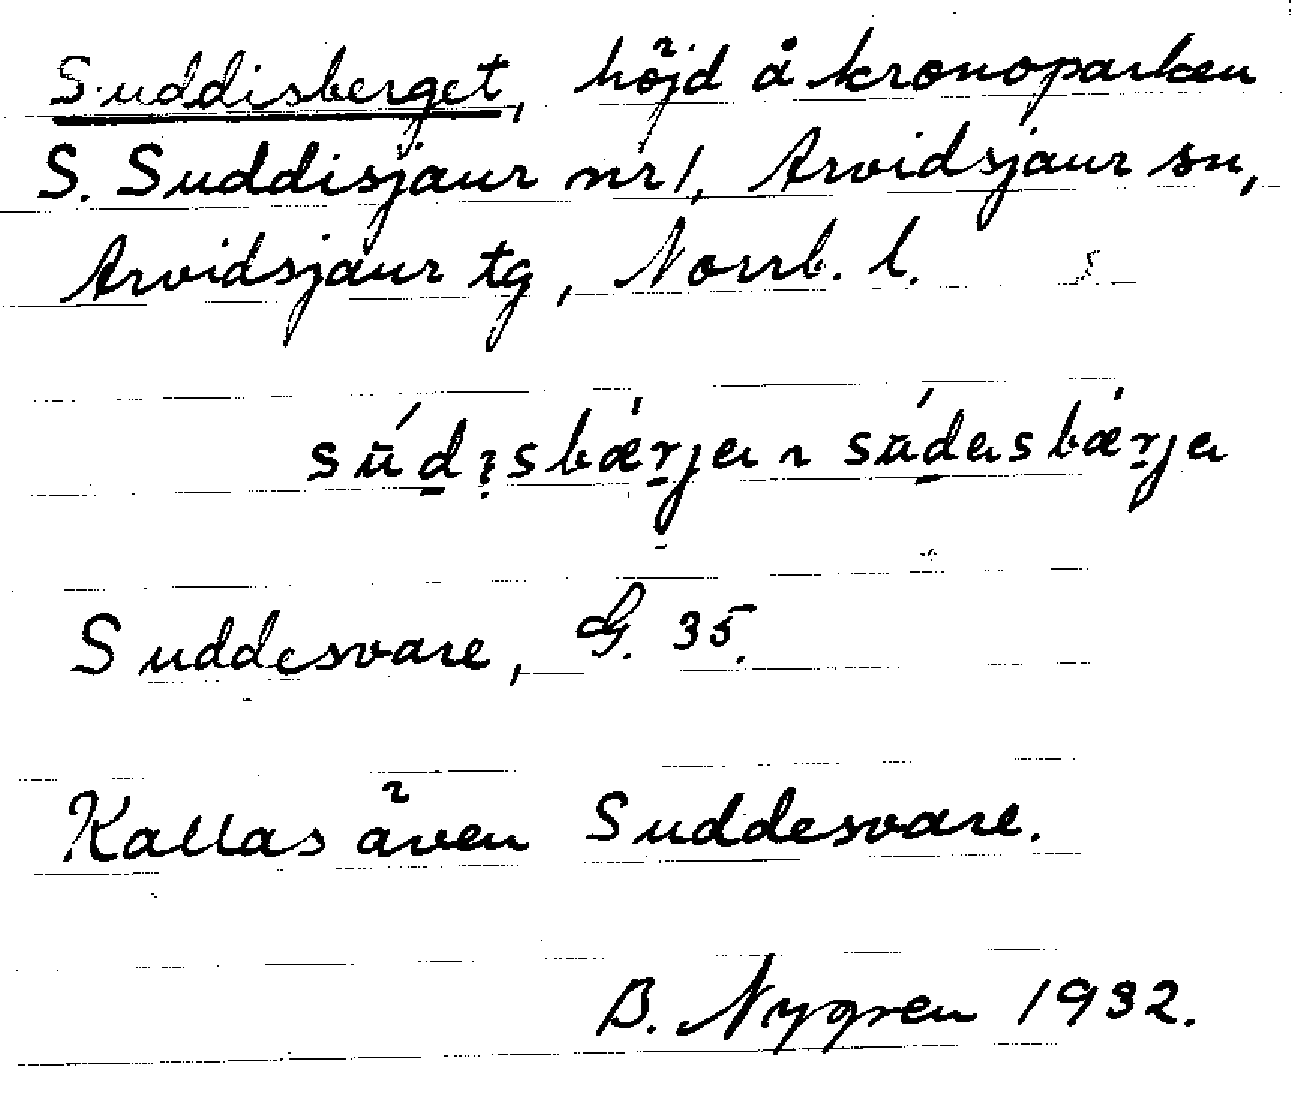 Suddisberget, höjd å kronoparken
S. Suddisjaur nr 1, Arvidsjaur sn,
Arvidsjaur tg, Norrb. l.
Suddesvare, G. 35.
Kallas även Suddesvare.
B. Nygren 1932.